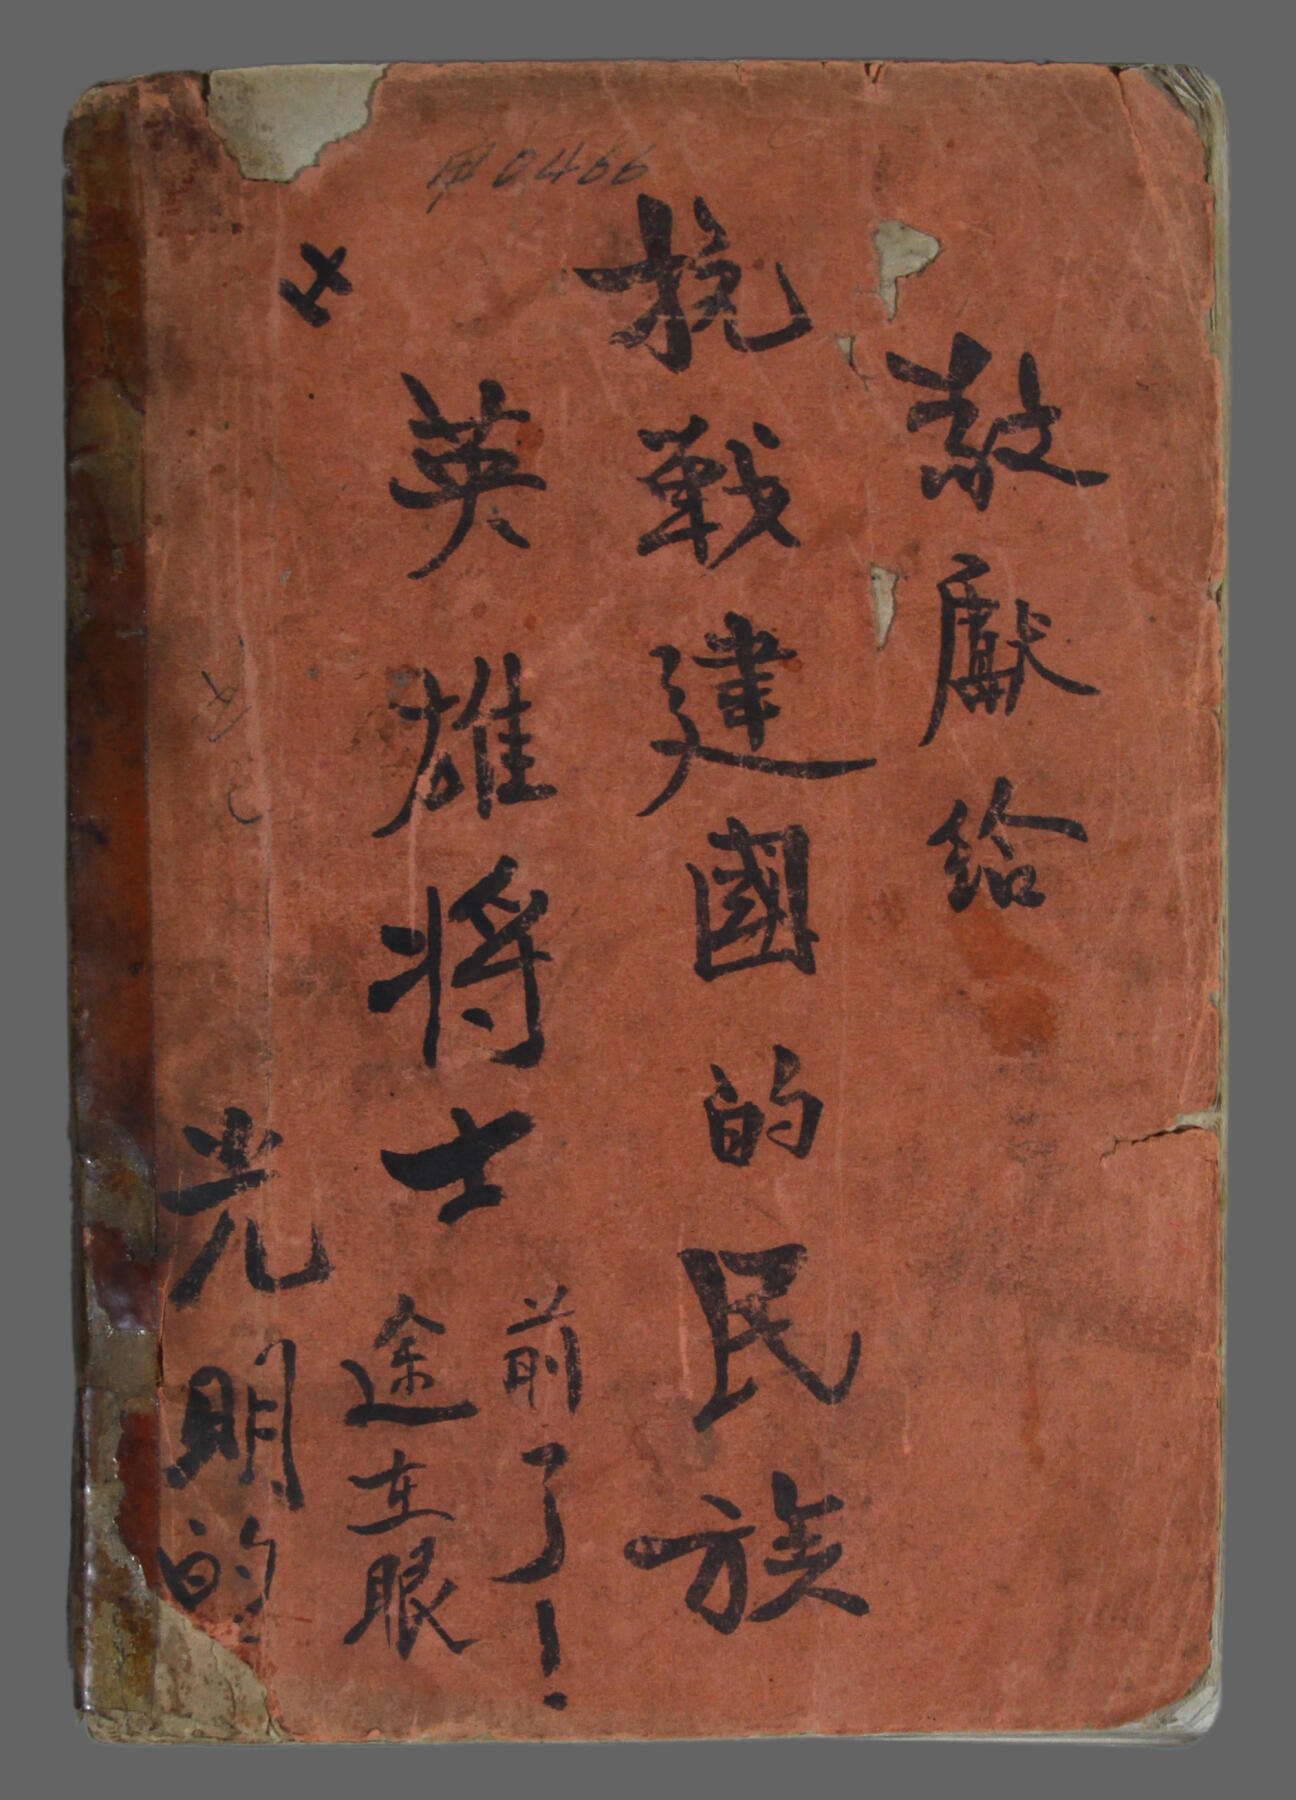 0466
敬獻給
抗戰建國的民族
英雄將士
光明的
途在眼
前了！